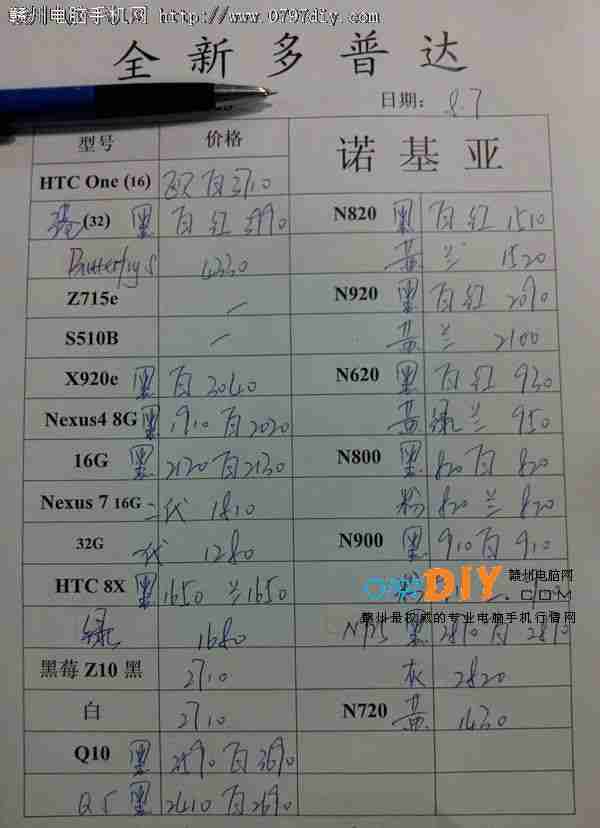 赣州电脑手机网 http://www.0797diy.com
全新多普达
日期: 8.7
型号 价格 诺基亚
HTC One (16) 白 3710
(32) 黑 白 红 N820 黑 白 红 1510
Butterfly S 4330 黄 兰 1520
Z715e — N920 黑 白 红 2090
S510B — 黄 兰 2100
X920e 黑 白 3040 N620 黑 白 红 930
Nexus4 8G 黑 1910 白 2020 黄 绿 兰 950
16G 黑 2120 白 2130 N800 黑 820 白 820
Nexus 7 16G 二代 1810 粉 820 兰 820
32G 一代 1280 N900 黑 910 白 910
HTC 8X 黑 1650 兰 1650 粉
0797DIY 赣州电脑网 .COM
赣州最权威的专业电脑手机行情网
绿 1680 N925 黑 2810 白
黑莓 Z10 黑 2710 灰 2820
白 2710 N720 黄 1430
Q10 黑 白 3690
Q5 黑 2410 白 2690